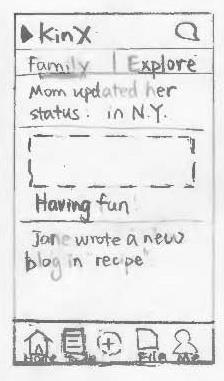 KinX
Family Explore
Mom updated her
status. in N.Y.
Having fun
Jane wrote a new
blog in "recipe"
Home File Me